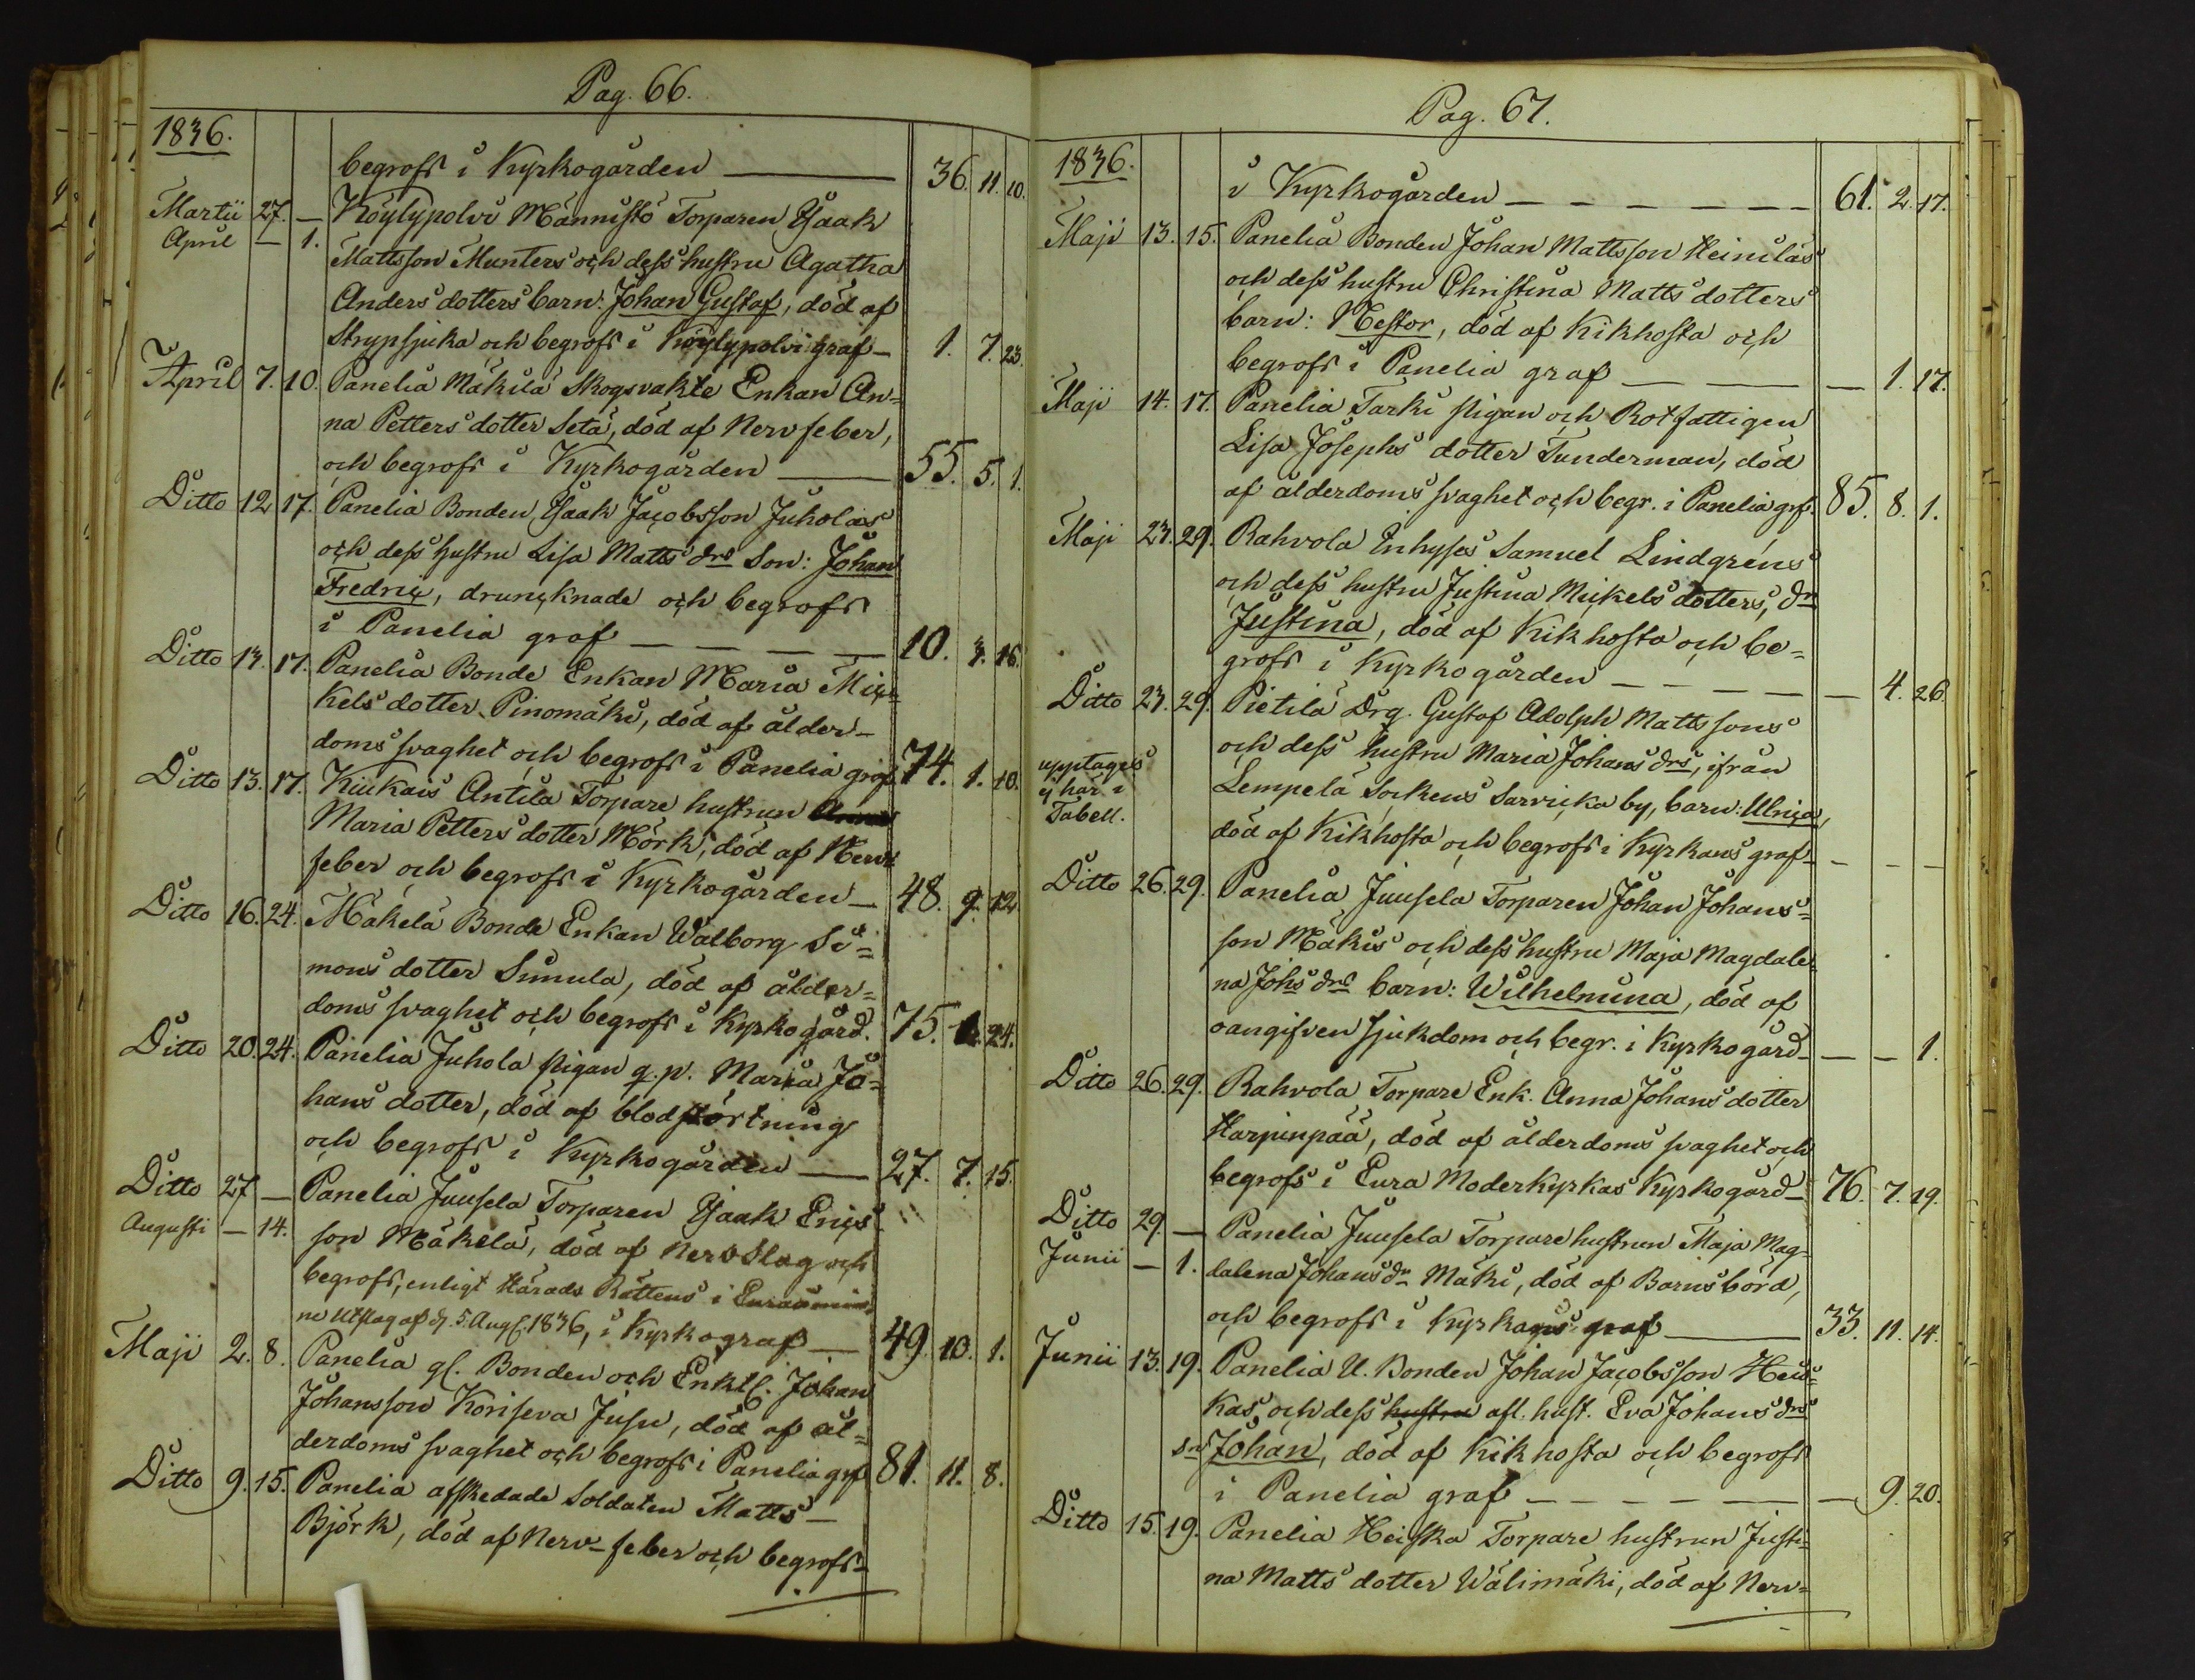 Pag. 66.
1836.
begrofs i Kyrkogården — 36. 11. 10.
Martii 27. — Köylypolvi Männistö Torparen Isaak
April — 1. Mattsson Munters och dess hustru Agatha
Anders dotters barn: Johan Gustaf, död af
Strypsjuka och begrofs i Köylypolvi graf — 1. 7. 23.
April 7. 10. Panelia Mäkilä Skogsvakte Enkan An=
na Petters dotter Setä, död af Nervfeber,
och begrofs i Kyrkogården — 55. 5. 1.
Ditto 12 17. Panelia Bonden Isaak Jacobsson Juholas
och dess hustru Lisa Matts drs Son: Johan
Fredric, druncknade och begrofs
i Panelia graf — — — — 10. 3. 16.
Ditto 13. 17. Panelia Bonde Enkan Maria Mic=
kels dotter Pinomäki, död af ålder=
doms svaghet och begrofs i Panelia graf 74. 1. 10.
Ditto 13. 17. Kiukais Antila Torpare hustrun Anna
Maria Petters dotter Mörk, död af Nerv
feber och begrofs i Kyrkogården — 48. 9. 12.
Ditto 16. 24. Mäkelä Bonde Enkan Walborg Si=
mons dotter Simula, död af ålder=
doms svaghet och begrofs i Kyrkogård. 75. 1. 24.
Ditto 20. 24. Panelia Juhola Pigan q.p. Maria Jo=
hans dotter, död af blodstörtning
och begrofs i Kyrkogården — 27. 7. 15.
Ditto 27 — Panelia Juusela Torparen Isaak Erics
Augusti — 14. son Mäkelä, död af Nerv Slag och
begrofs, enligt Härads Rättens i Euraåmin=
ne Utslag af d. 5. Aug. 1836, i Kyrkograf — 49. 10. 1.
Maji 2. 8. Panelia gl. Bonden och Enkl. Johan
Johansson Koriseva Jusu, död af ål=
derdoms svaghet och begrofs i Panelia grf 81. 11. 8.
Ditto 9. 15. Panelia afskedade Soldaten Matts
Björk, död af Nerv-feber och begrofs=
Pag. 67.
1836.
i Kyrkogården — — — — — — 61. 2. 17.
Maji 13. 15. Panelia Bonden Johan Mattsson Heinilas
och dess hustru Christina Matts dotters
barn: Nestor, död af Kikhosta och
begrofs i Panelia graf — — — 1. 17.
Maji 14. 17. Panelia Tarki Pigan och Rotfattigen
Lisa Josephs dotter Tunderman, död
af ålderdoms svaghet och begr. i Panelia grf. 85. 8. 1.
Maji 23. 29. Rahvola Inhyses Samuel Lindgréns
och dess hustru Justina Mickels dotters, dr
Justina, död af Kikhosta och be=
grofs i Kyrkogården — — — — — 4. 26.
Ditto 23. 29. Pietilä Drg. Gustaf Adolph Mattssons
och dess hustru Maria Johans drs, ifrån
upptages
ej här i
Tabell.
Lempelä Sockens Sarvicka by, barn: Ulrica,
död af Kikhosta och begrofs i Kyrkans graf — — —
Ditto 26. 29. Panelia Juusela Torparen Johan Johans=
son Mäkis och dess hustru Maja Magdale=
na Johs drs barn: Wilhelmina, död af
oangifven Sjukdom och begr. i Kyrkogård — — 1.
Ditto 26. 29. Rahvola Torpare Enk. Anna Johans dotter
Harpinpää, död af ålderdoms svaghet och
begrofs i Eura Moderkyrkas Kyrkogård — 76. 7. 19.
Ditto 29. — Panelia Juusela Torpare hustrun Maja Mag=
Junii — 1. dalena Johans dr Mäki, död af Barnsbörd,
och begrofs i Kyrkans graf — 33. 11. 14.
Junii 13. 19. Panelia U. Bonden Johan Jacobsson Heis=
kas, och dess hustru afl. hust. Eva Johans drs
sn Johan, död af Kikhosta och begrofs
i Panelia graf — — — — — — 9. 20.
Ditto 15. 19. Panelia Heiska Torpare hustrun Justi=
na Matts dotter Wälimäki, död af Nerv=